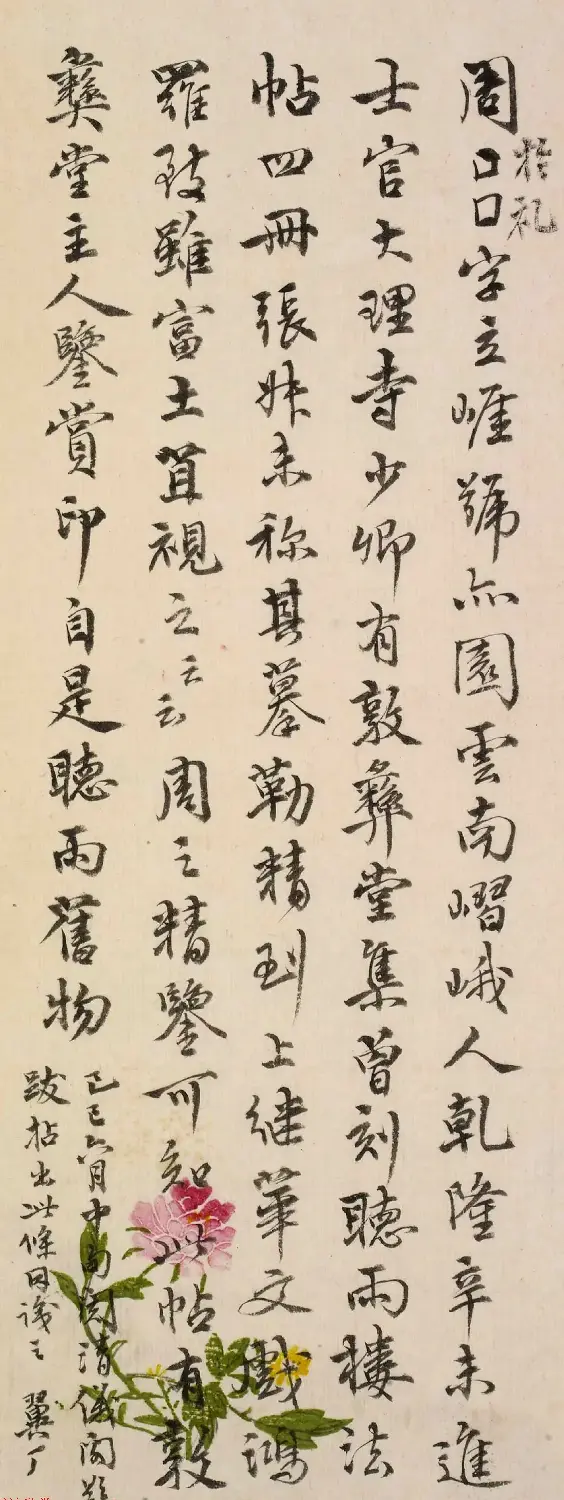 周口口字立崕號亦園雲南嶍峨人乾隆辛未進
於礼
士官大理寺少卿有敦彝堂集曾刻聽雨樓法
帖四冊張叔未称其摹勒精到上繼華文戲鴻
羅致雖富土苴視之云云周之精鑒可知此帖有敦
彝堂主人鑒賞印自是聽雨舊物
己巳六月中雨閱清儀閣題
跋拈出此條因識之 翼丁